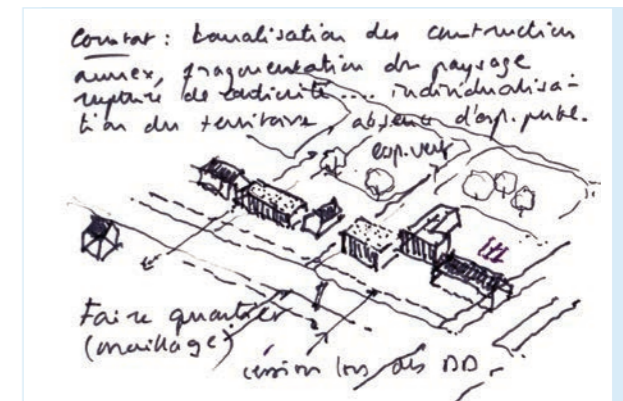 Constat : banalisation des construction
annex, fragmentation du paysage
rupture de continuité ... individualisa-
tion du territoire, absence d'esp. publ.
esp. vert
Faire quartier
(maillage)
cession lors des DD.